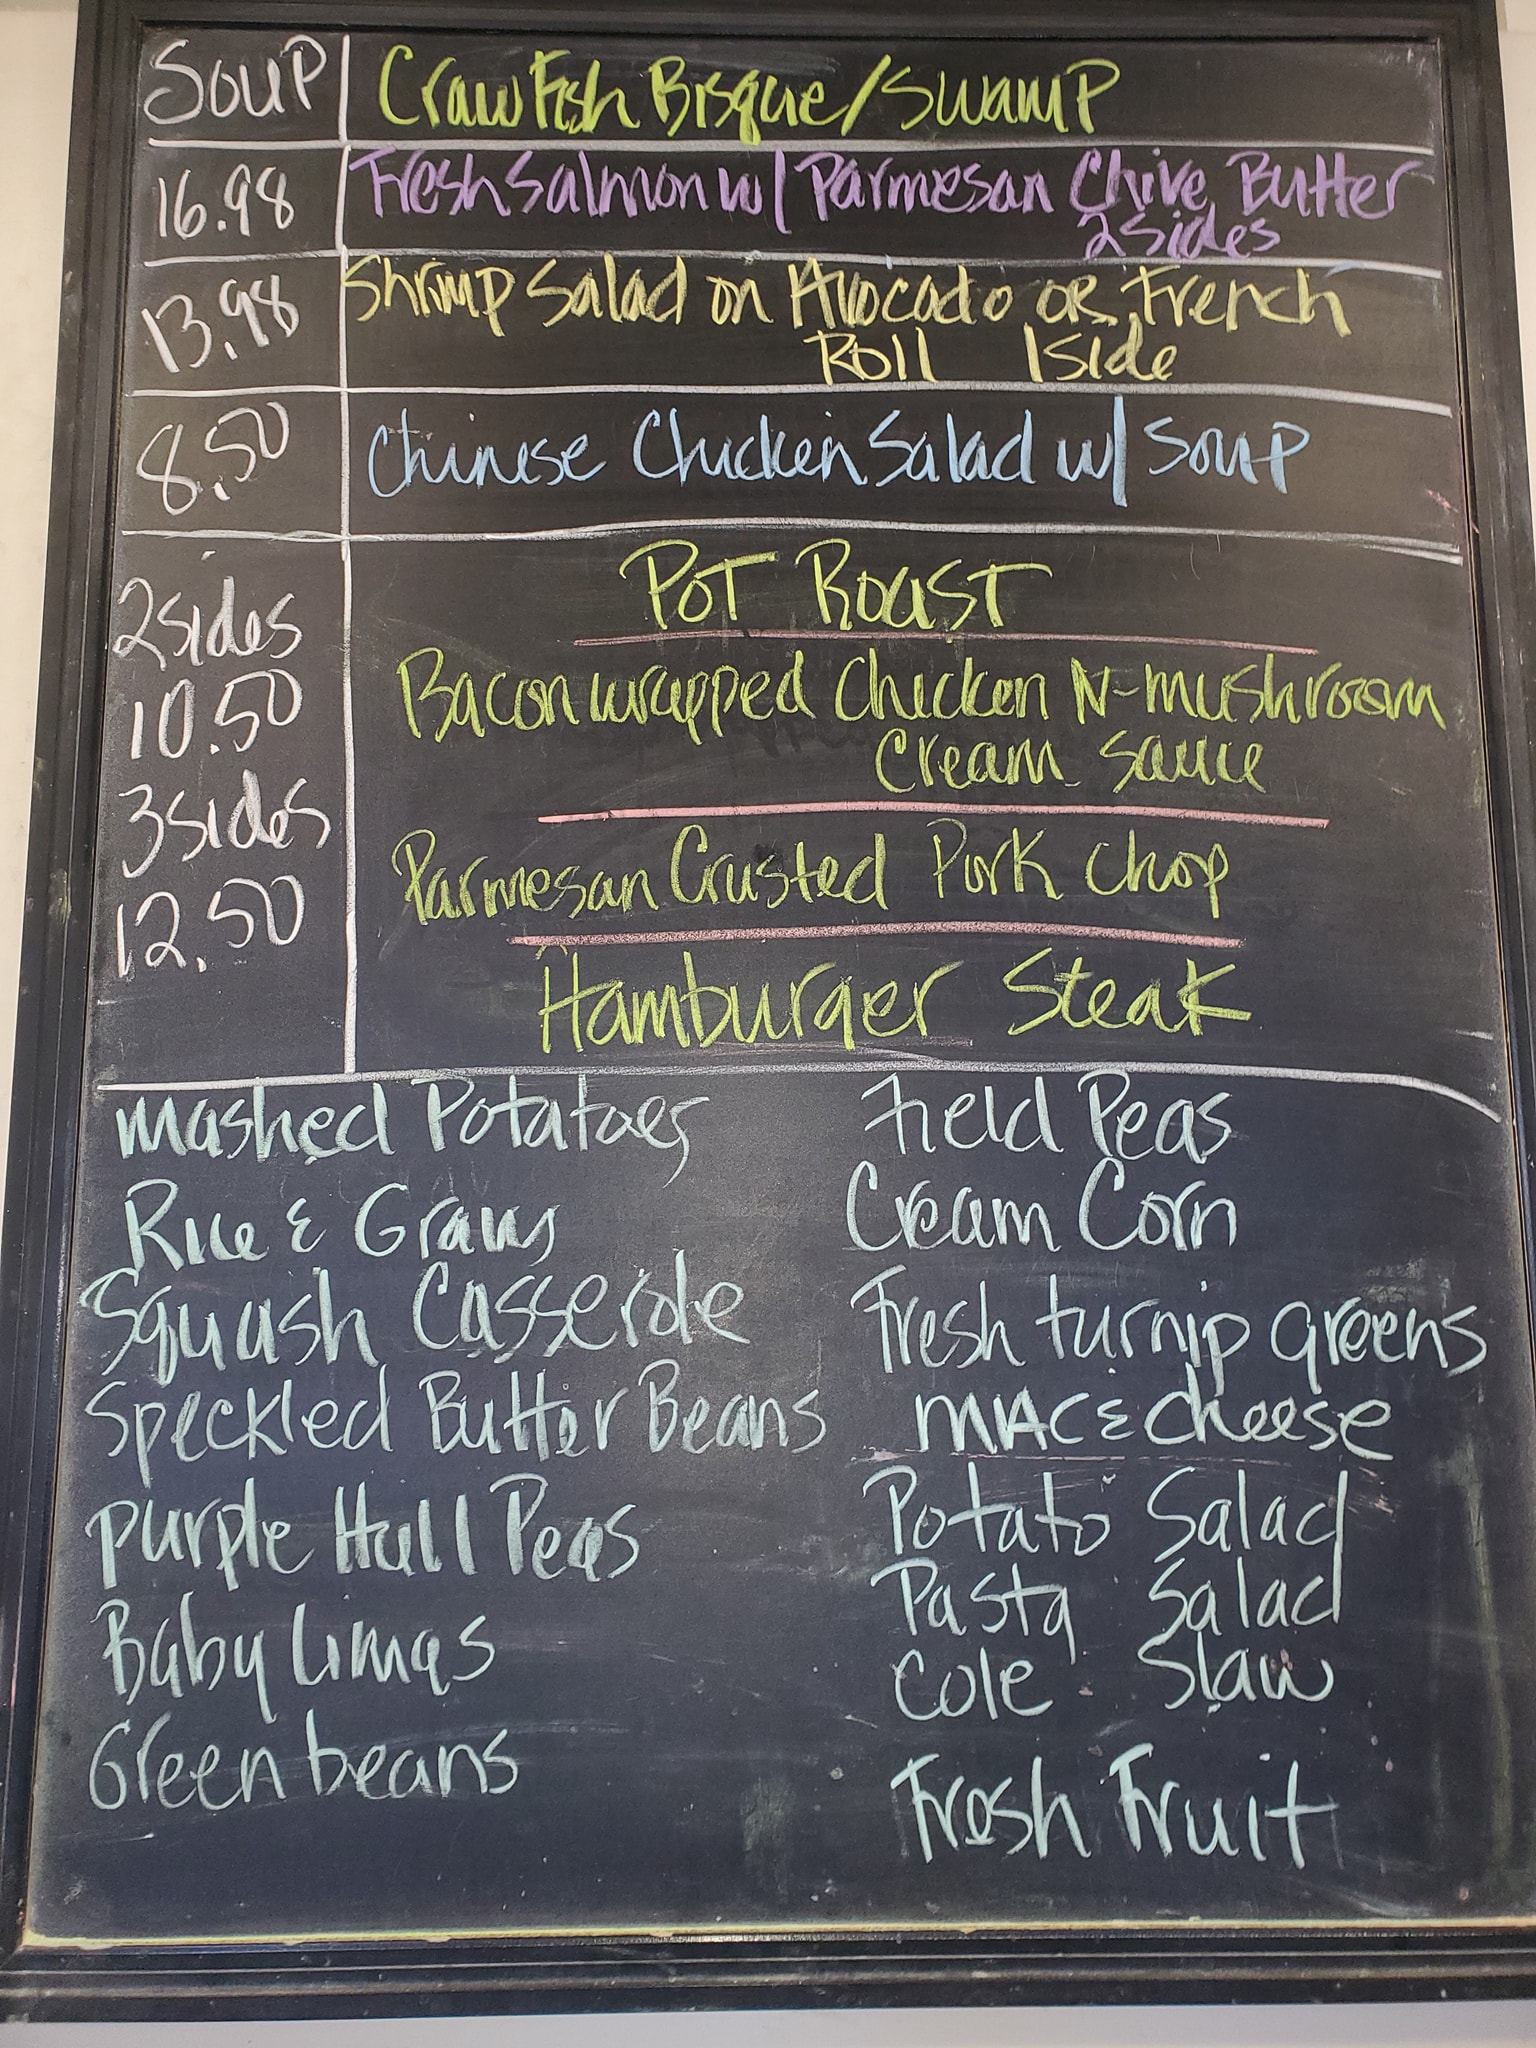 SOUP CrawFish Bisque/SWAMP
16.98 Fresh Salmon w/ Parmesan Chive Butter
2 Sides
13.98 Shrimp Salad on Avocado OR French
Roll 1 Side
8.50 Chinese Chicken Salad w/ Soup
POT ROAST
2 sides
10.50
Bacon wrapped Chicken N-mushroom
Cream Sauce
3 sides
12.50
Parmesan Crusted Pork Chop
Hamburger Steak
Mashed Potatoes
Rice & Gravy
Squash Casserole
Speckled Butter Beans
Purple Hull Peas
Baby Limas
Green beans
Field Peas
Cream Corn
Fresh turnip greens
MAC & Cheese
Potato Salad
Pasta Salad
Cole Slaw
Fresh Fruit